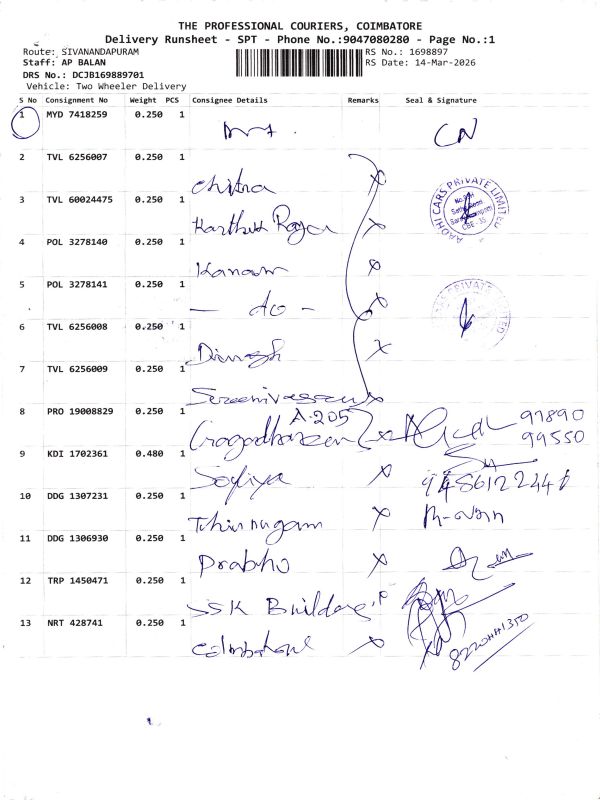 THE PROFESSIONAL COURIERS, COIMBATORE
Delivery Runsheet - SPT - Phone No.:9047080280 - Page No.:1
Route: SIVANANDAPURAM
RS No.: 1698897
Staff: AP BALAN
RS Date: 14-Mar-2026
DRS No.: DCJB169889701
Vehicle: Two Wheeler Delivery
S No Consignment No Weight PCS Consignee Details Remarks Seal & Signature
1 MYD 7418259 0.250 1
CN
2 TVL 6256007 0.250 1
Chitra
3 TVL 60024475 0.250 1
Karthik Raja
AADHI CARS PRIVATE LIMITED
4 POL 3278140 0.250 1
Kanam
5 POL 3278141 0.250 1
- do -
6 TVL 6256008 0.250 1
Dinesh
7 TVL 6256009 0.250 1
Sreenivasan
8 PRO 19008829 0.250 1
A-205
Gangadharan
97890
99550
9 KDI 1702361 0.480 1
Sofiya
10 DDG 1307231 0.250 1
Thirumugam
11 DDG 1306930 0.250 1
Prabhu
12 TRP 1450471 0.250 1
SSK Builders
13 NRT 428741 0.250 1
Coimbatore